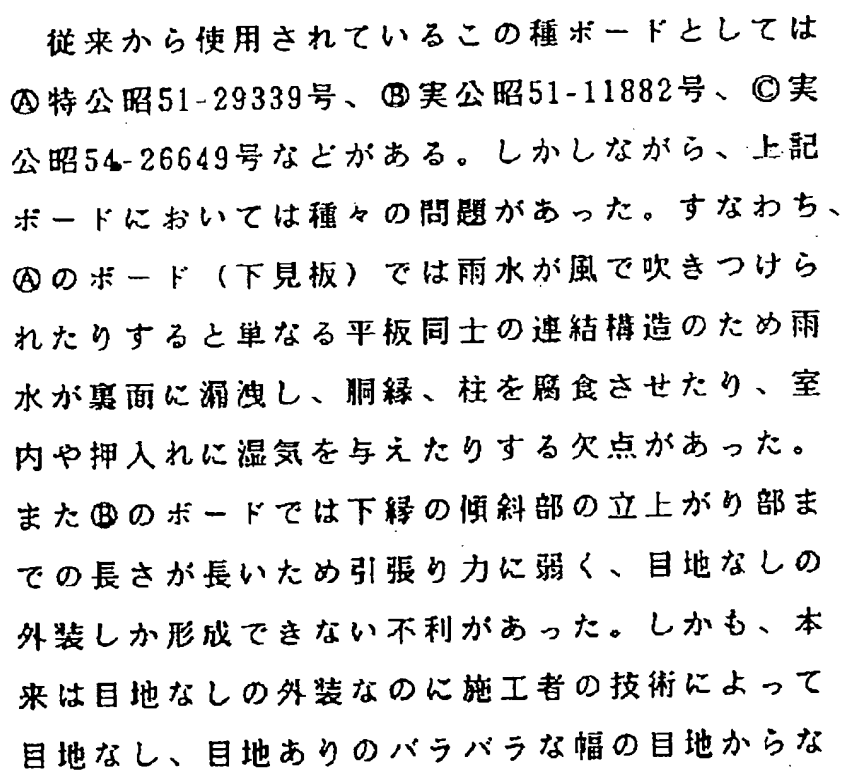 従来から使用されているこの種ボードとしては
Ⓐ特公昭51-29339号、Ⓑ実公昭51-11882号、Ⓒ実
公昭54-26649号などがある。しかしながら、上記
ボードにおいては種々の問題があった。すなわち、
Ⓐのボード（下見板）では雨水が風で吹きつけら
れたりすると単なる平板同士の連結構造のため雨
水が裏面に漏洩し、胴縁、柱を腐食させたり、室
内や押入れに湿気を与えたりする欠点があった。
またⒷのボードでは下縁の傾斜部の立上がり部ま
での長さが長いため引張り力に弱く、目地なしの
外装しか形成できない不利があった。しかも、本
来は目地なしの外装なのに施工者の技術によって
目地なし、目地ありのバラバラな幅の目地からな